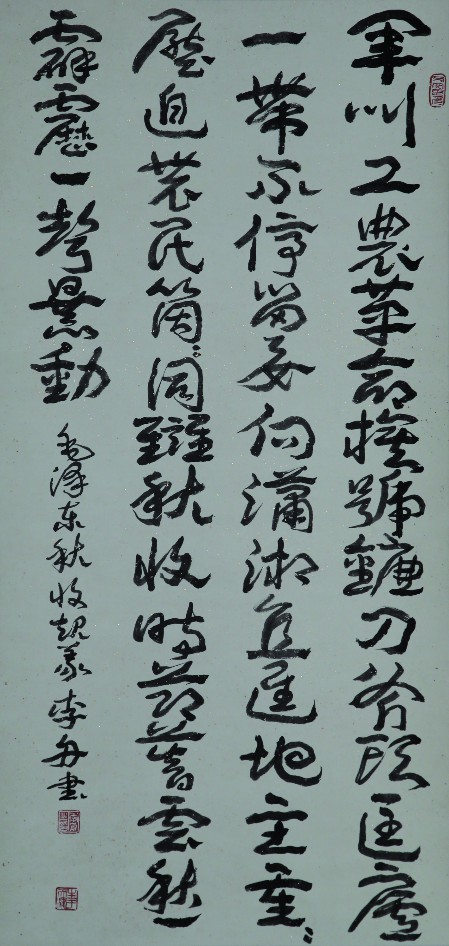 軍叫工農革命旗號鐮刀斧頭匡廬
一帶不停留要向瀟湘直進地主重々
壓迫農民箇々同讎秋收時節暮雲愁
霹靂一聲暴動
毛澤東秋收起義 李 書